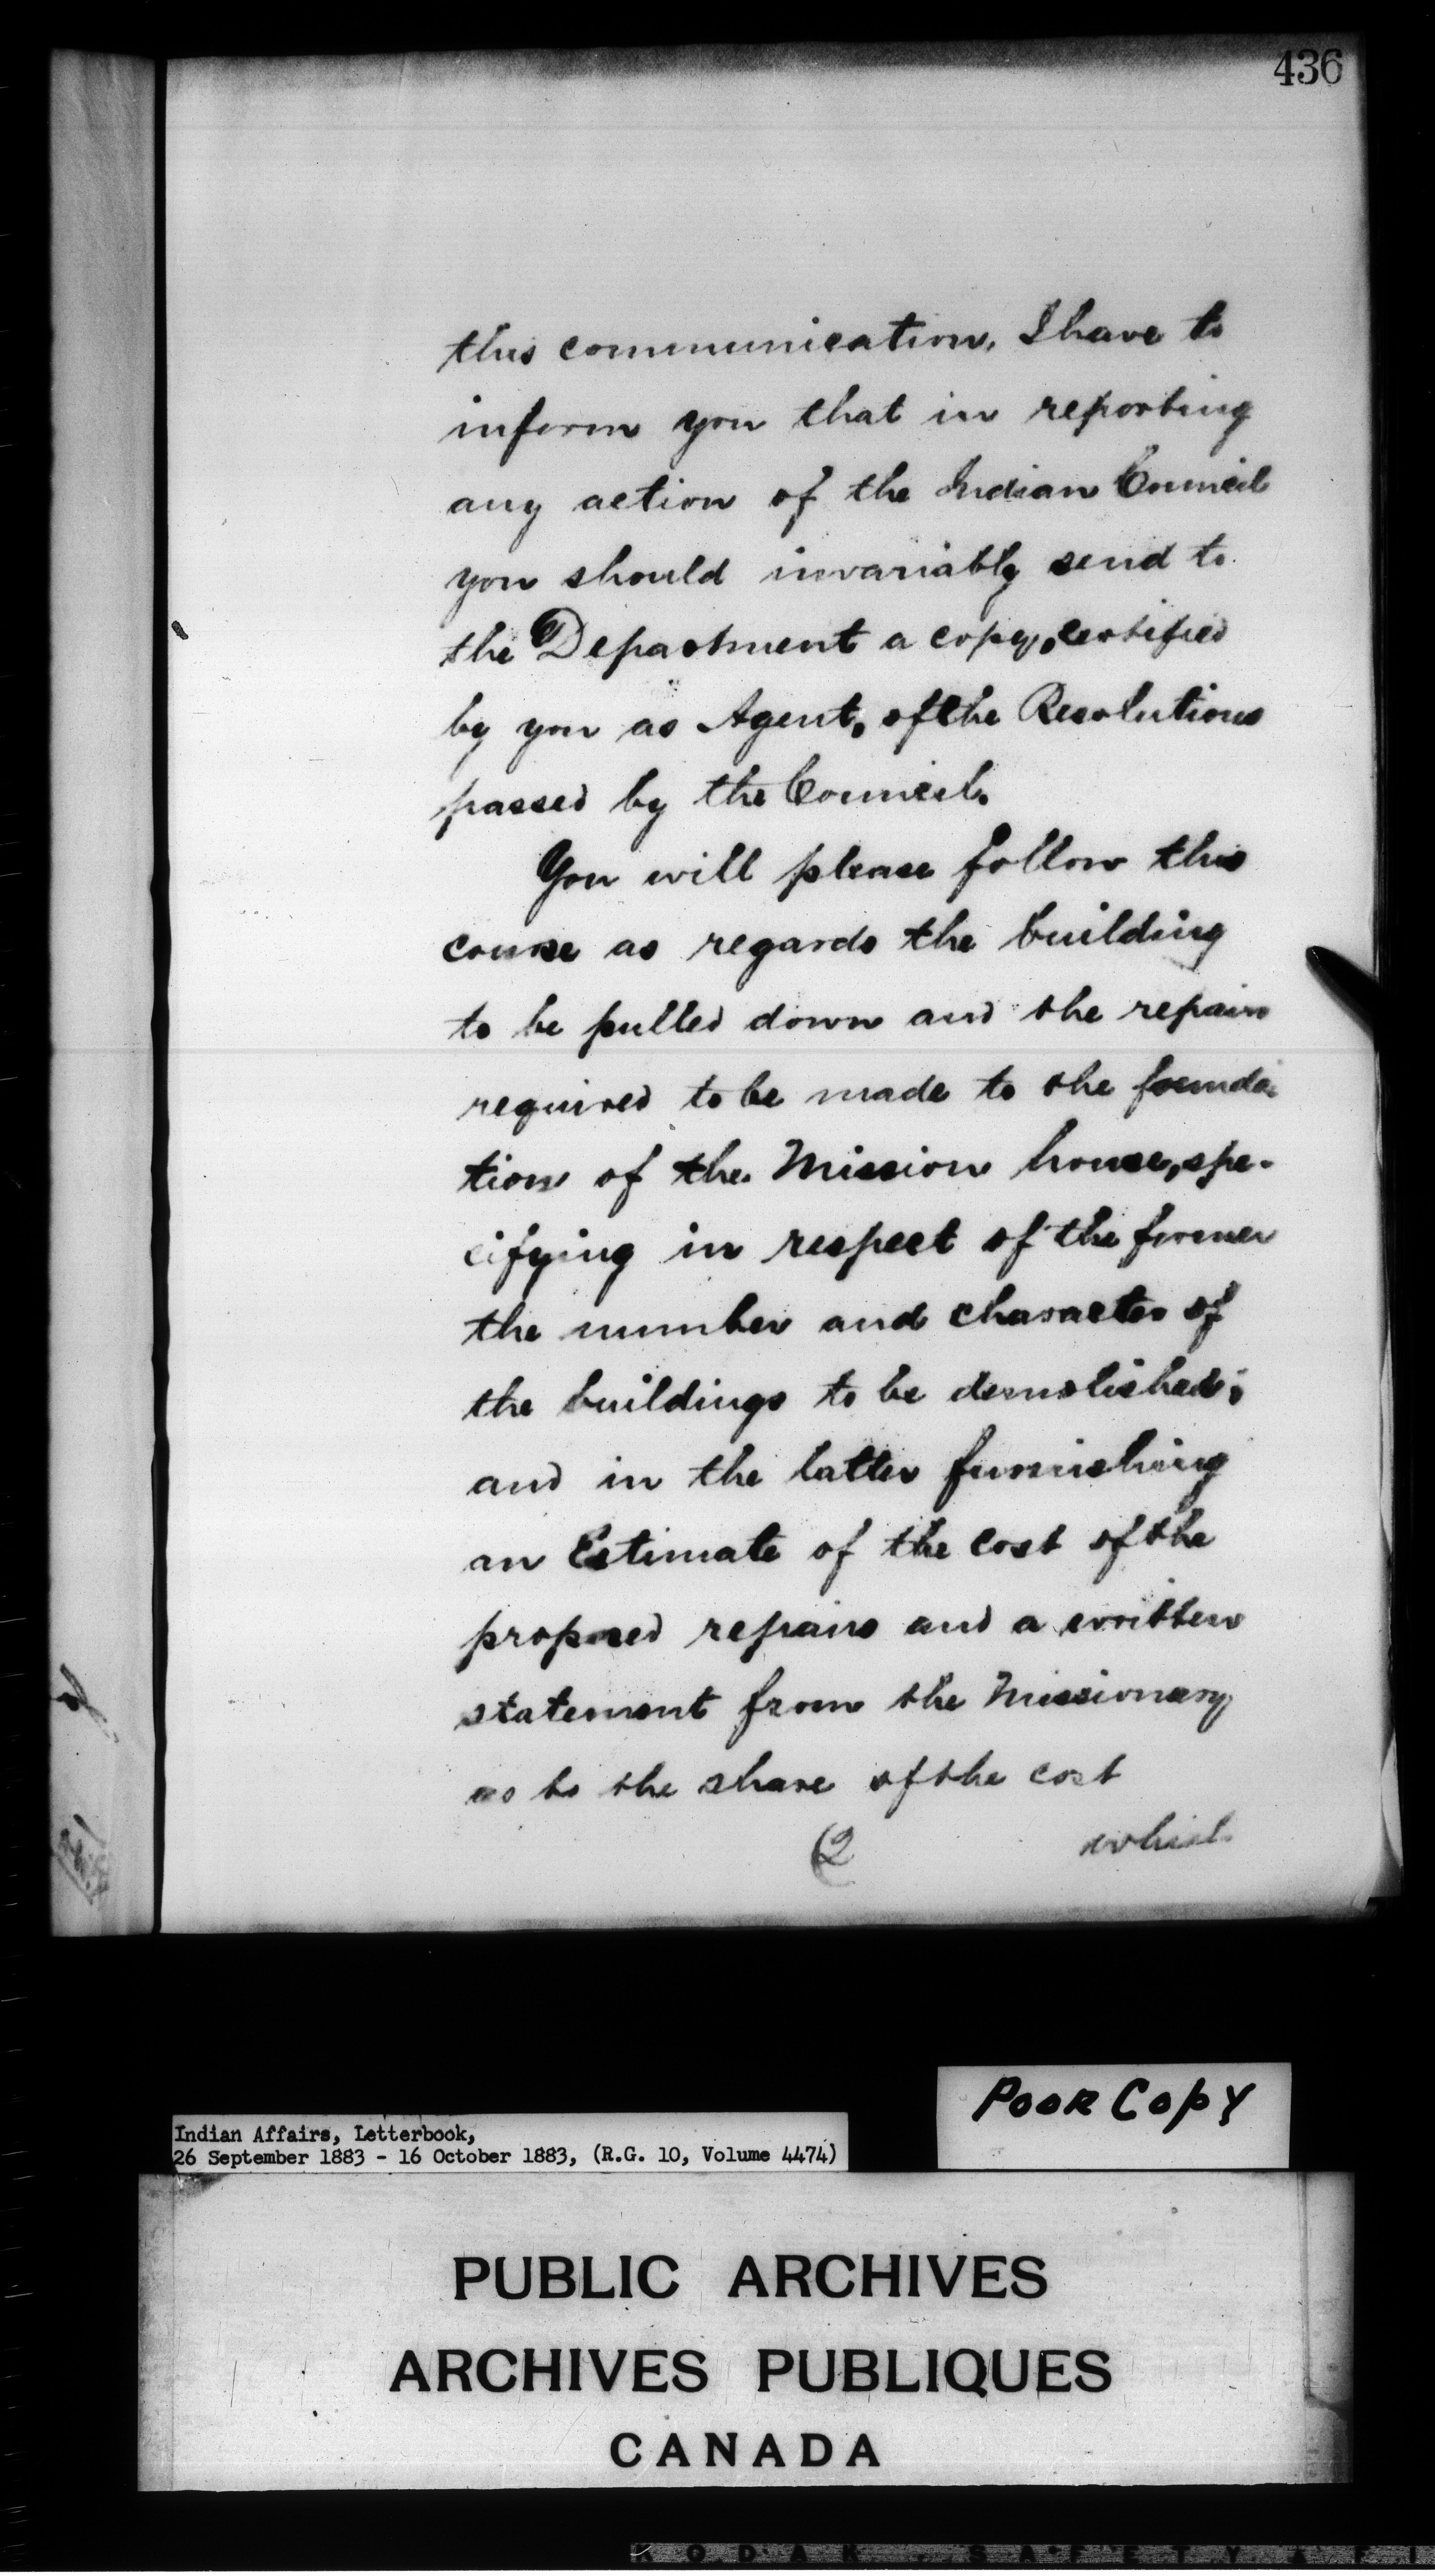 436
this communication, I have to
inform you that in reporting
any action of the Indian Council
you should invariably send to
the Department a copy, certified
by you as Agent, of the Resolutions
passed by the Council.
You will please follow this
course as regards the building
to be pulled down and the repairs
required to be made to the founda-
tion of the Mission house, spe-
cifying in respect of the former
the number and character of
the buildings to be demolished;
and in the latter furnishing
an Estimate of the cost of the
proposed repairs and a written
statement from the Missionary
as to the share of the cost
(2 which
POOR COPY
Indian Affairs, Letterbook,
26 September 1883 - 16 October 1883, (R.G. 10, Volume 4474)
PUBLIC ARCHIVES
ARCHIVES PUBLIQUES
CANADA
KODAK SAFETY